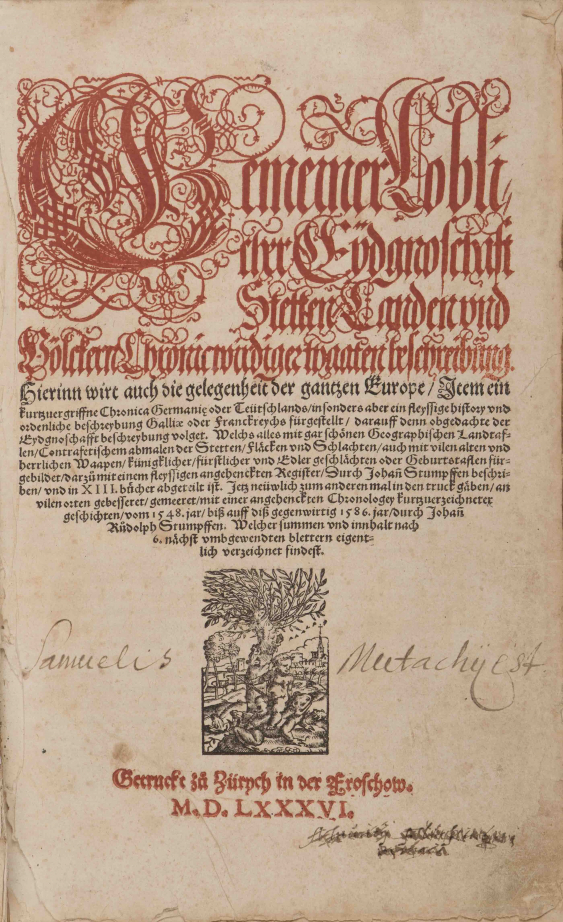 Gemeiner Lobli
cher Eydgnoschafft
Stetten Landen vnd
Völckern Chronic wirdiger thaaten beschreybung.
Hierinn wirt auch die gelegenheit der gantzen Europe/Item ein
kurtzuergriffne Chronica Germanię oder Teütschlands/in sonders aber ein fleyssige history vnd
ordenliche beschreybung Galliæ oder Franckreychs fürgestellt/darauff denn obgedachte der
Eydgnoschafft beschreybung volget. Welchs alles mit gar schönen Geographischen Landtaf-
len/Contrafetischem abmalen der Stetten/Fläcken vnd Schlachten/auch mit vilen alten vnd
herrlichen Waapen/künigklicher/fürstlicher vnd Edler geschlächten oder Geburtstaflen für-
gebildet/darzů mit einem fleyssigen angehenckten Register/Durch Johañ Stumpffen beschri-
ben/vnd in XIII. bůcher abgeteilt ist. Jetz neüwlich zum anderen mal in den truck gäben/an
vilen orten gebesseret/gemeeret/mit einer angehenckten Chronologey kurtzuerzeichneter
geschichten/vom 1548. jar/biß auff diß gegenwirtig 1586. jar/durch Johañ
Růdolph Stumpffen. Welcher summen vnd innhalt nach
6. nächst vmbgewendten blettern eigent-
lich verzeichnet findest.
Samuelis Mutachij Est
Getruckt zů Zürych in der Froschow.
M. D. LXXXVI.